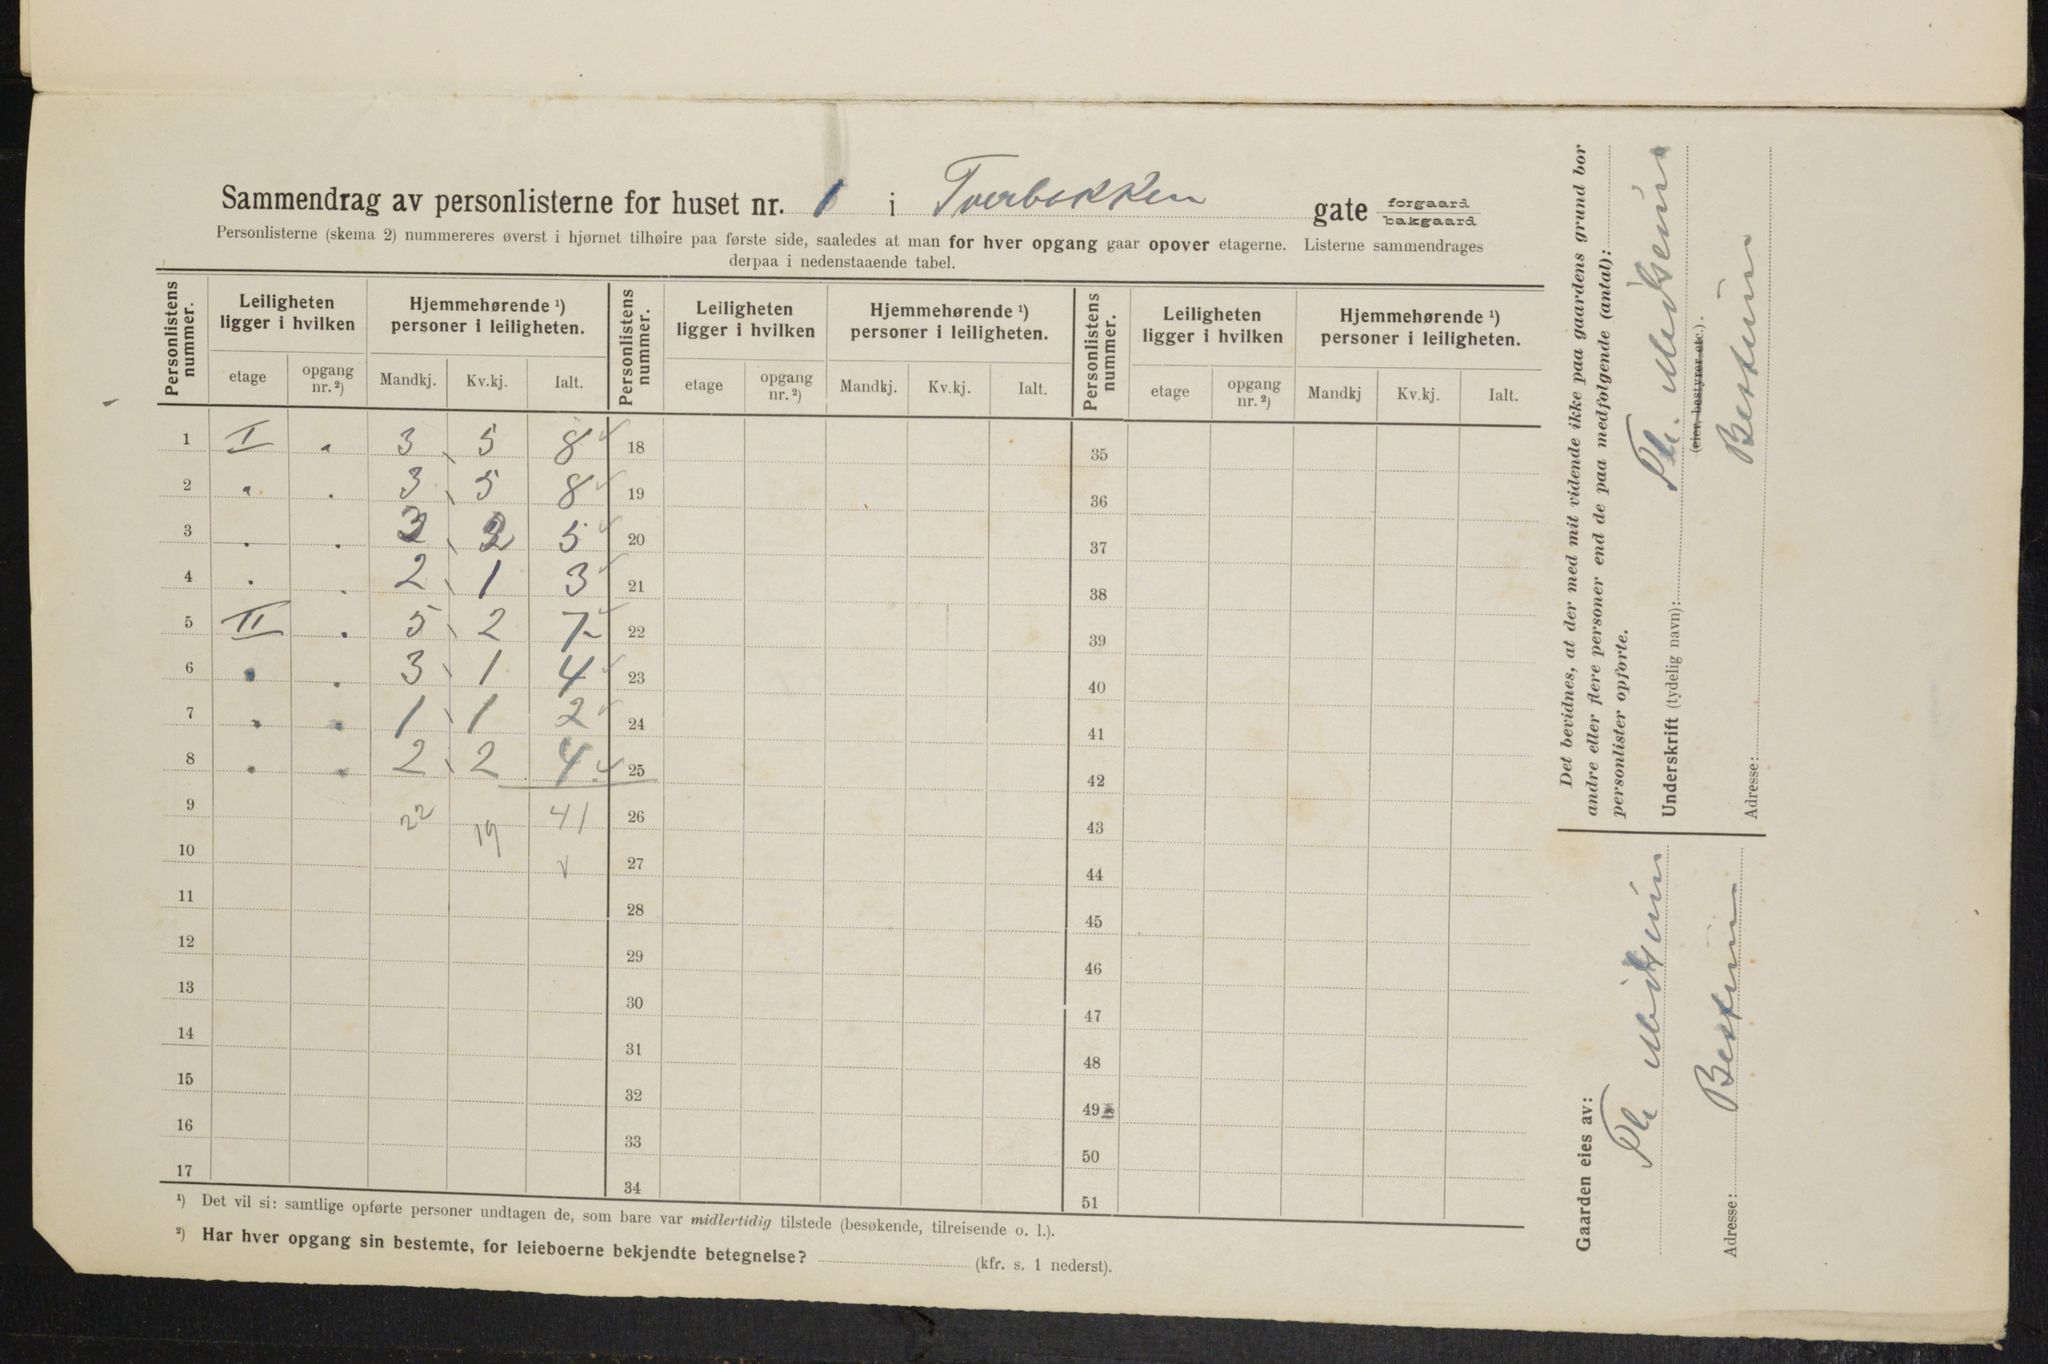 Sammendrag av personlisterne for huset nr. 1 i Tverbakken gate forgaard bakgaard
Personlisterne (skema 2) nummereres øverst i hjørnet tilhøire paa første side, saaledes at man for hver opgang gaar opover etagerne. Listerne sammendrages
derpaa i nedenstaaende tabel.
Personlistens nummer. Leiligheten ligger i hvilken Hjemmehørende ¹) personer i leiligheten. Personlistens nummer. Leiligheten ligger i hvilken Hjemmehørende ¹) personer i leiligheten. Personlistens nummer. Leiligheten ligger i hvilken Hjemmehørende ¹) personer i leiligheten.
etage opgang nr. ²) Mandkj. Kv.kj. Ialt. etage opgang nr. ²) Mandkj. Kv.kj. Ialt. etage opgang nr. ²) Mandkj Kv.kj. Ialt.
1 I . 3 5 8 ✓ 18 35
2 . . 3 5 8 ✓ 19 36
3 . . 3 2 5 ✓ 20 37
4 . . 2 1 3 ✓ 21 38
5 II . 5 2 7 ✓ 22 39
6 . . 3 1 4 ✓ 23 40
7 . . 1 1 2 ✓ 24 41
8 . . 2 2 4 ✓ 25 42
9 22 19 41 26 43
10 ✓ 27 44
11 28 45
12 29 46
13 30 47
14 31 48
15 32 49
16 33 50
17 34 51
¹) Det vil si: samtlige opførte personer undtagen de, som bare var midlertidig tilstede (besøkende, tilreisende o. l.).
²) Har hver opgang sin bestemte, for leieboerne bekjendte betegnelse? (kfr. s. 1 nederst).
Det bevidnes, at der med mit vidende ikke paa gaardens grund bor
andre eller flere personer end de paa medfolgende (antal):
personlister opførte.
Underskrift (tydelig navn):
(eier, bestyrer etc.).
Adresse: Bestum
Gaarden eies av:
Adresse: Bestum